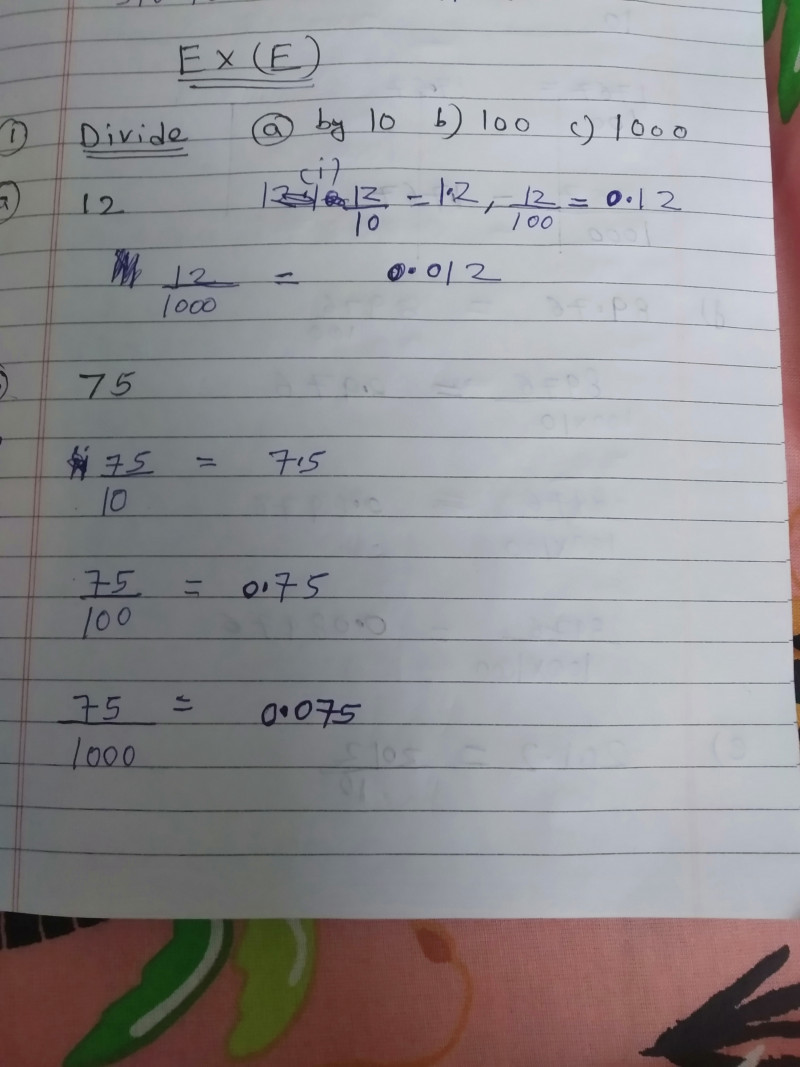 Ex (E)
1) Divide (a) by 10 b) 100 c) 1000
(i)
a) 12 12/10 = 1.2, 12/100 = 0.12
12/1000 = 0.012
75
75/10 = 7.5
75/100 = 0.75
75/1000 = 0.075